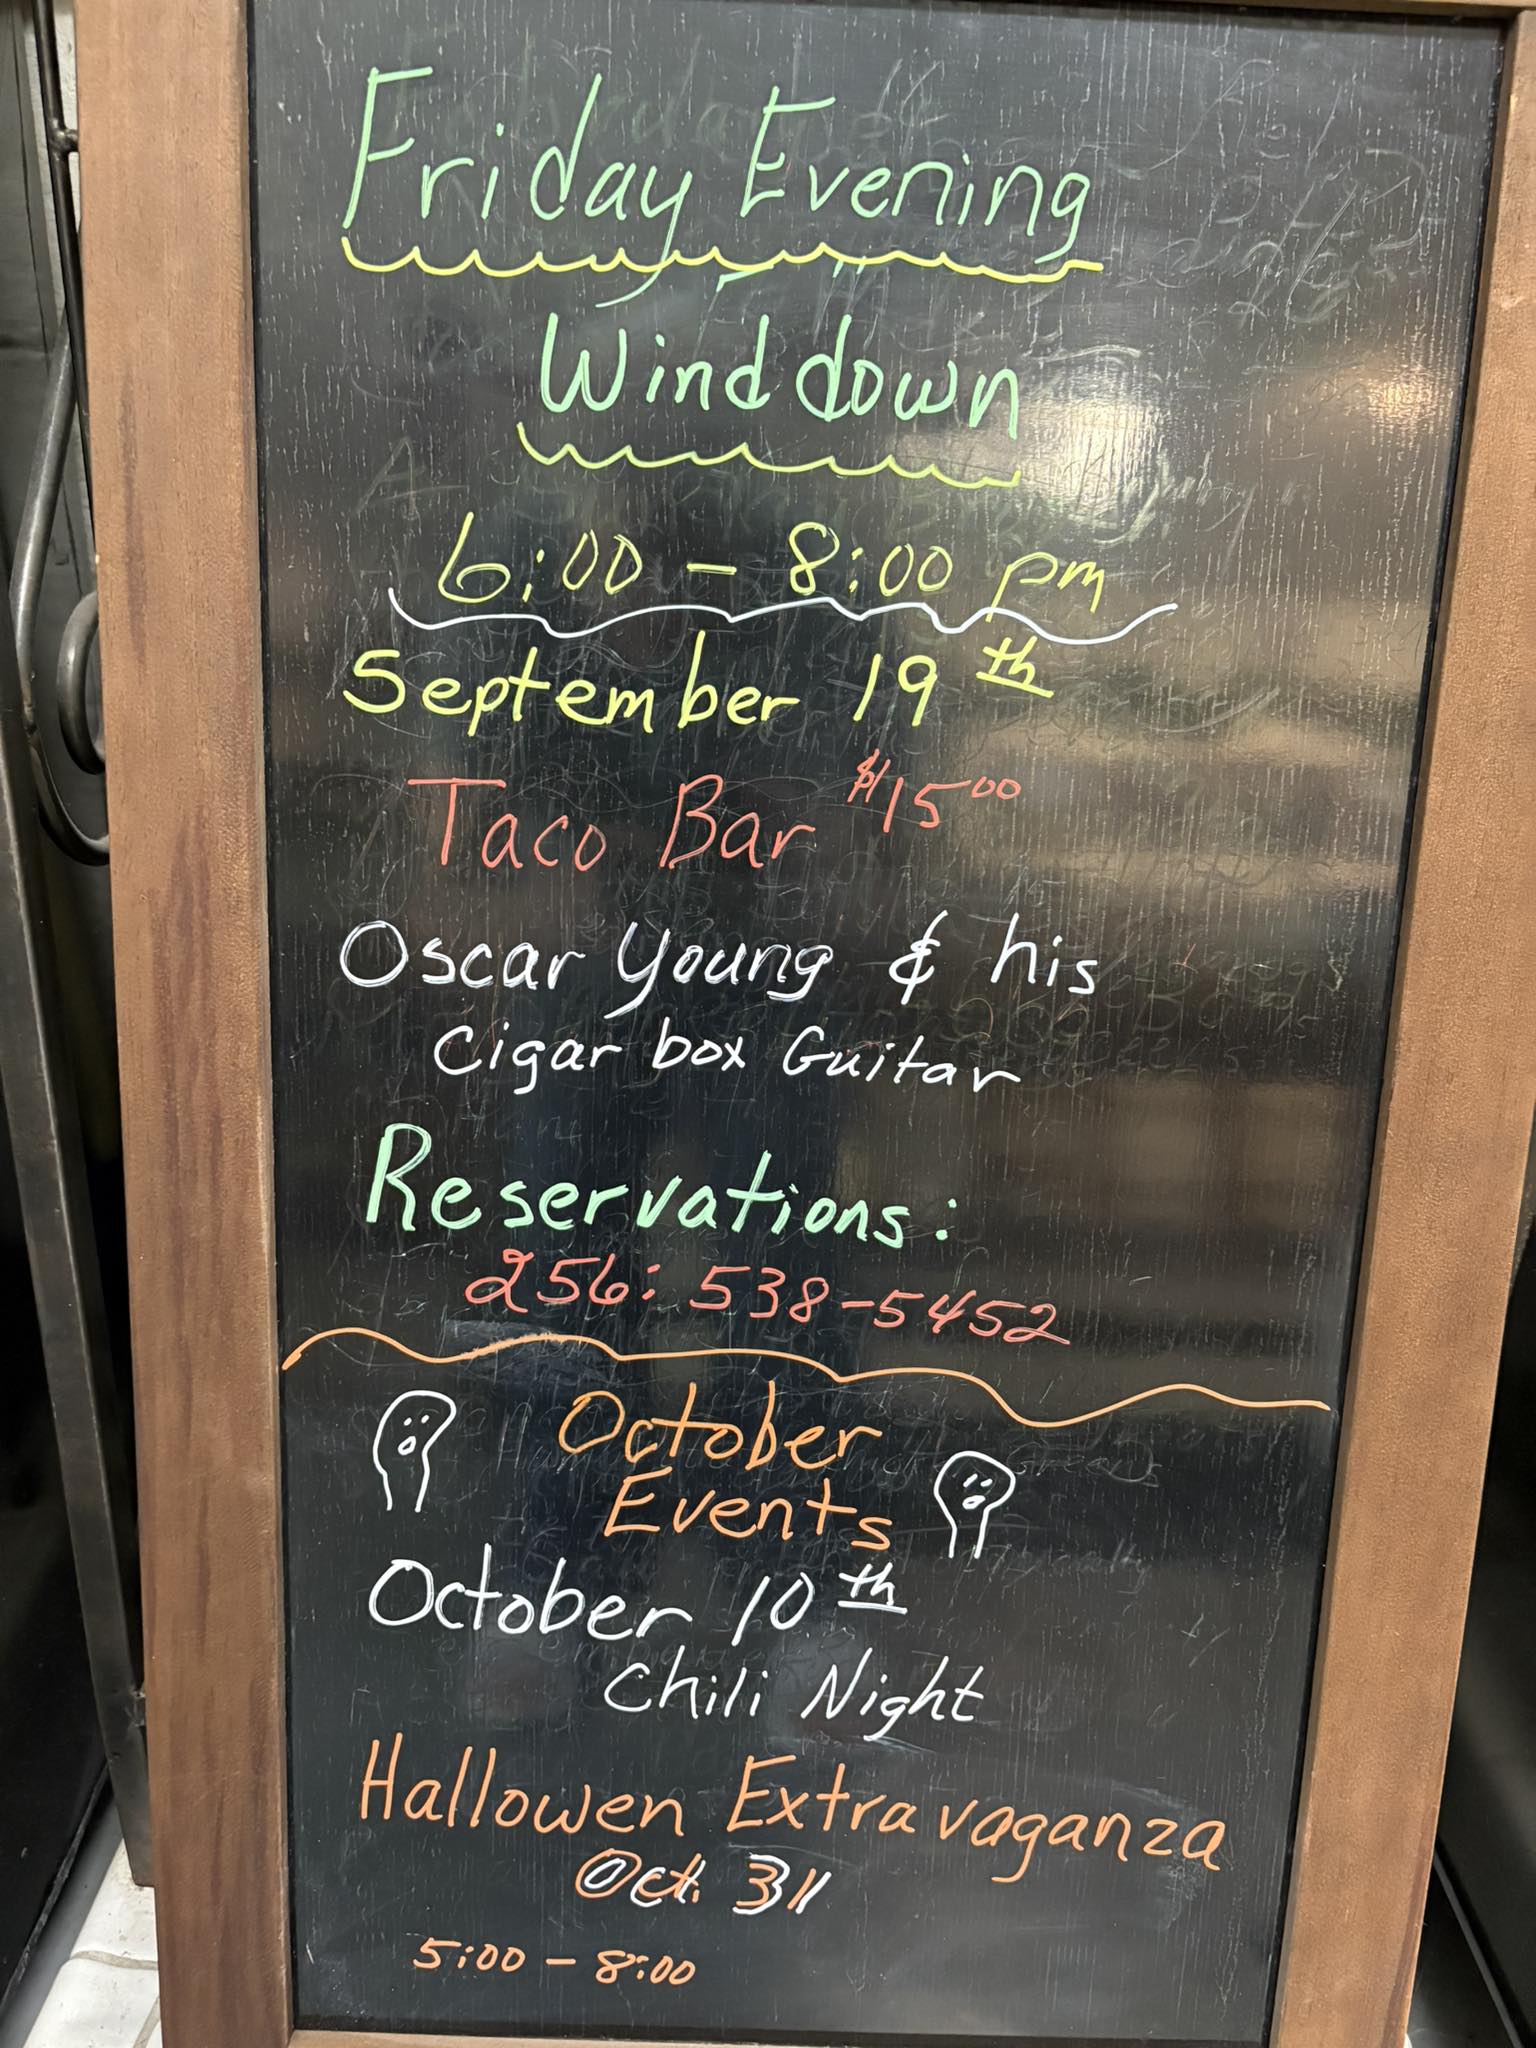 Friday Evening
Wind down
6:00 - 8:00 pm
September 19th
Taco Bar $15 00
Oscar Young & his
Cigar box Guitar
Reservations:
256: 538-5452
October
Events
October 10th
Chili Night
Hallowen Extravaganza
Oct. 31
5:00 - 8:00